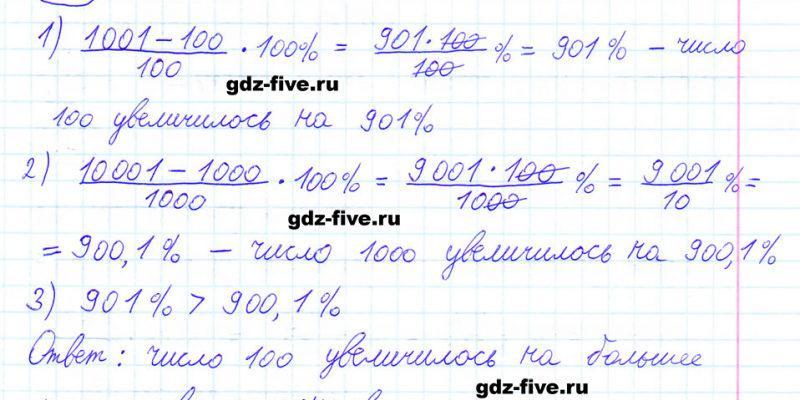 1) (1001 − 100)/100 · 100% = (901 · 100)/100 % = 901% − число
gdz-five.ru
100 увеличилось на 901%
2) (10001 − 1000)/1000 · 100% = (9001 · 100)/1000 % = 9001/10 % =
gdz-five.ru
= 900,1% − число 1000 увеличилось на 900,1%
3) 901% > 900,1%
Ответ: число 100 увеличилось на большее
gdz-five.ru